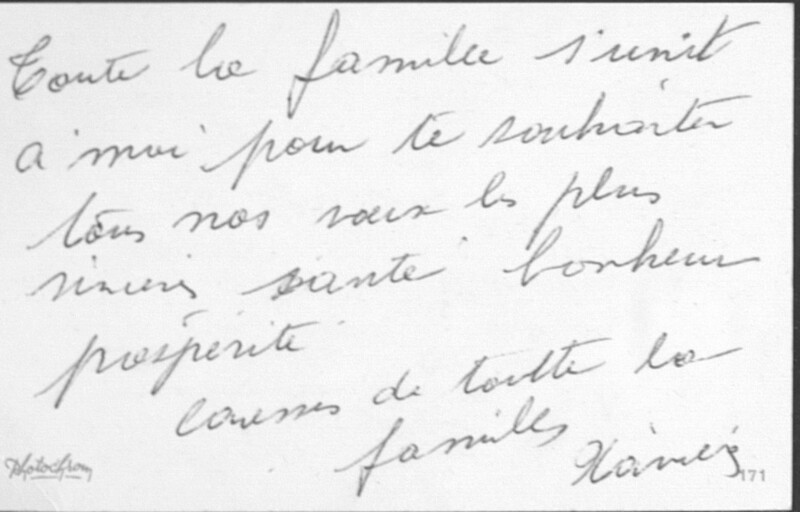 Toute la famille s'unit
a moi pour te souhaiter
tous nos vœux les plus
sinceres santé bonheur
prospérité
caresses de toutte la
famille
Xavier
Photochrom
171